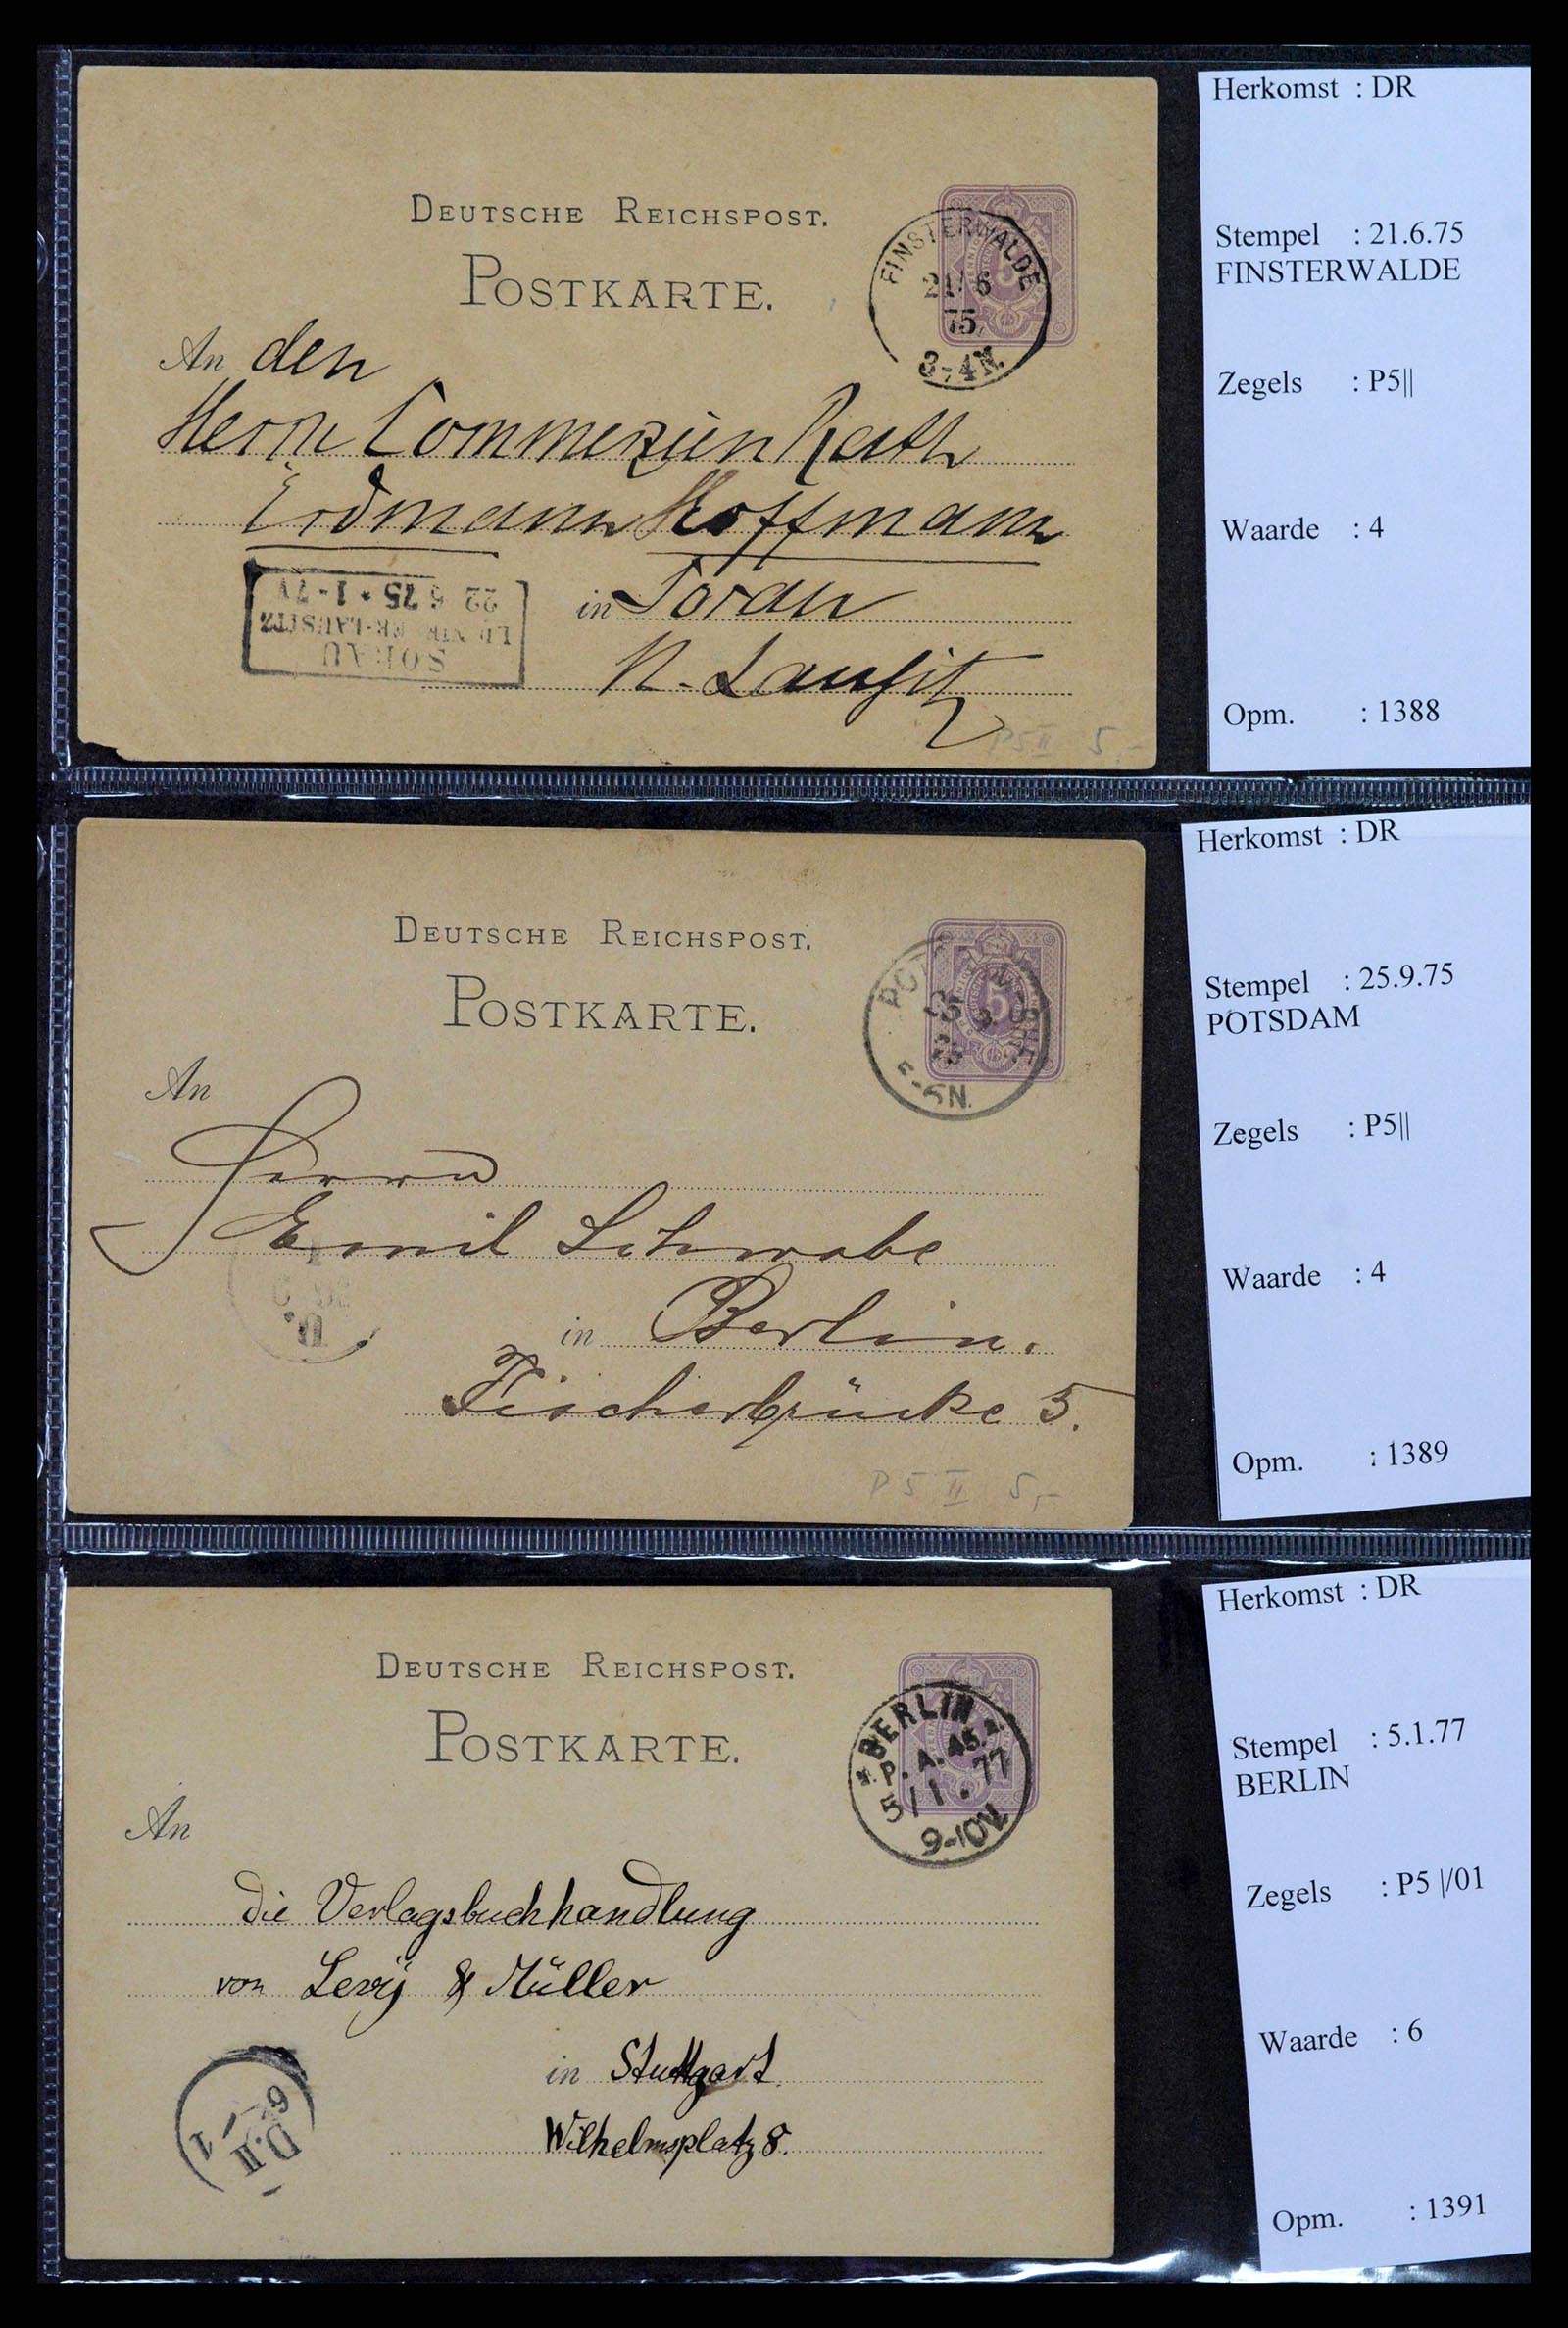 DEUTSCHE REICHSPOST.
POSTKARTE.
FINSTERWALDE
21/6
75
3-4N.
An den
Herrn Commerzien Rath
Erdmann Hoffmann
in Sorau
N. Lausitz
SORAU
22 6 75 * 1-7V
P5 II 5,-
Herkomst : DR
Stempel : 21.6.75
FINSTERWALDE
Zegels : P5||
Waarde : 4
Opm. : 1388
DEUTSCHE REICHSPOST.
POSTKARTE.
25 9
75
5-6N.
An
Herrn
Emil Schwabe
in Berlin.
Fischerbrücke 5.
P 5 II 5,-
Herkomst : DR
Stempel : 25.9.75
POTSDAM
Zegels : P5||
Waarde : 4
Opm. : 1389
DEUTSCHE REICHSPOST.
POSTKARTE.
* BERLIN *
P. A. 45.
5/1.77
9-10V.
An
die Verlagsbuchhandlung
von Levÿ & Müller
in Stuttgart.
Wilhelmsplatz 8.
6 1
D.II
Herkomst : DR
Stempel : 5.1.77
BERLIN
Zegels : P5 |/01
Waarde : 6
Opm. : 1391